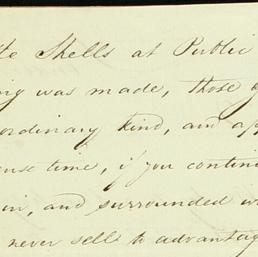 tte Shells at Public
ing was made, those of
ordinary kind, and ap
ense time, if you contin
in, and surrounded w
never sell to advantag